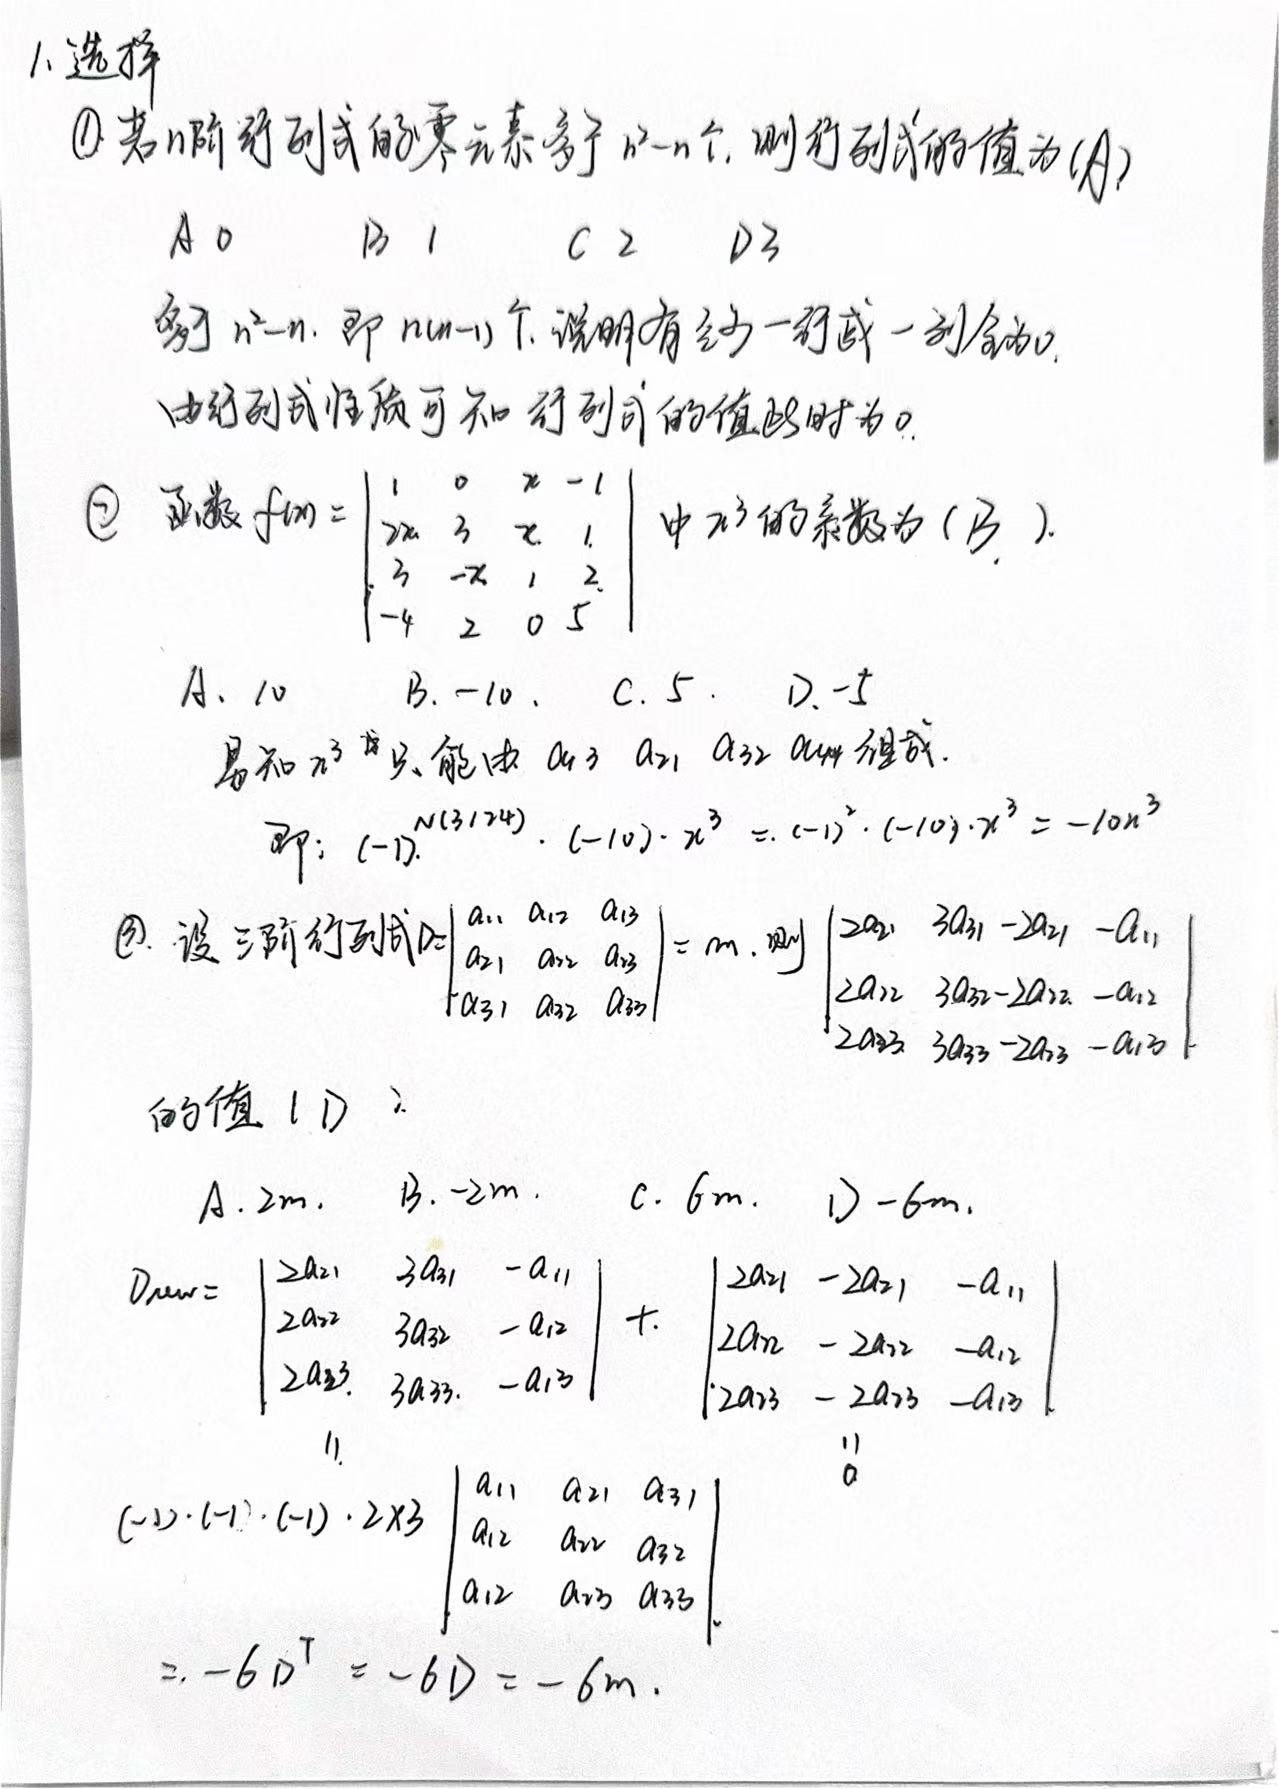 1、选择
① 若n阶行列式的零元素多于 n²-n个,则行列式的值为(A)
A 0 B 1 C 2 D 3
多于 n²-n. 即 n(n-1)个.说明有至少一行或一列全为0.
由行列式性质可知 行列式的值此时为0.
② 函数 f(x)= | 1 0 x -1 |
| 2x 3 x 1 | 中x³的系数为(B).
| 3 -x 1 2 |
| -4 2 0 5 |
A. 10 B. -10. C. 5. D. -5
易知 x³ 只能由 a13 a21 a32 a44 组成.
即: (-1)^N(3124) · (-10) · x³ = (-1)² · (-10) · x³ = -10x³
③. 设三阶行列式D= | a11 a12 a13 | = m. 则 | 2a21 3a31-2a21 -a11 |
| a21 a22 a23 | | 2a22 3a32-2a22 -a12 |
| a31 a32 a33 | | 2a23 3a33-2a23 -a13 |
的值(D)
A. 2m. B. -2m. C. 6m. D -6m.
Dnew= | 2a21 3a31 -a11 | + | 2a21 -2a21 -a11 |
| 2a22 3a32 -a12 | | 2a22 -2a22 -a12 |
| 2a23 3a33 -a13 | | 2a23 -2a23 -a13 |
|| ||
0
(-1)·(-1)·(-1)·2×3 | a11 a21 a31 |
| a12 a22 a32 |
| a12 a23 a33 |
= -6D^T = -6D = -6m.